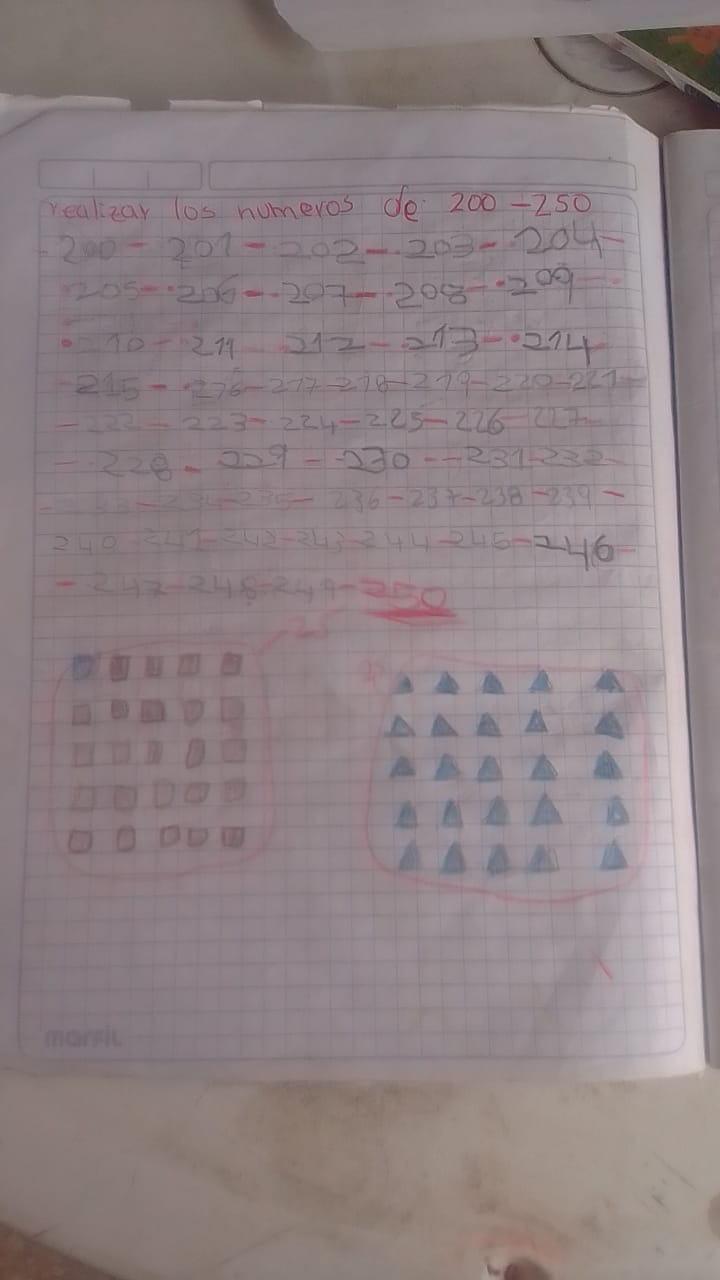 realizar los numeros de: 200 - 250
200 - 201 - 202 - 203 - 204 -
205 - 206 - 207 - 208 - 209
210 - 211 212 - 213 - 214
215 - 216 - 217 - 218 - 219 - 220 - 221 -
- 222 - 223 - 224 - 225 - 226 - 227
- 228 - 229 - 230 - 231 - 232
- 234 - 235 - 236 - 237 - 238 - 239 -
240 - 241 - 242 - 243 - 244 - 245 - 246 -
- 247 - 248 - 249 - 250
25
marfil